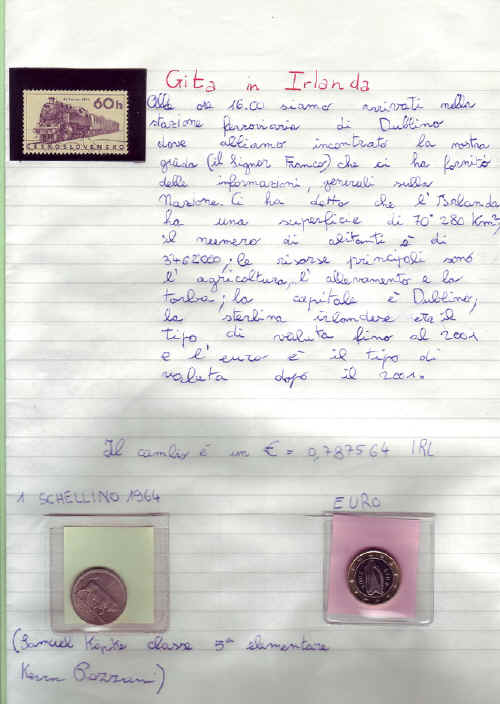 Gita in Irlanda
60h
ČESKOSLOVENSKO
Alle ore 16.00 siamo arrivati nella
stazione ferroviaria di Dublino
dove abbiamo incontrato la nostra
guida (il Signor Franco) che ci ha fornito
delle informazioni, generali sulla
Nazione. Ci ha detto che l'Irlanda
ha una superficie di 70°280 Km²,
il numero di abitanti è di
3462000; le risorse principali sono
l'agricoltura, l'allevamento e la
torba; la capitale è Dublino;
la sterlina irlandese era il
tipo di valuta fino al 2001
e l'euro è il tipo di
valuta dopo il 2001.
Il cambio è un € = 0,787564 IRL
1 SCHELLINO 1964
EURO
(Samuel classe 5ª elementare
Pozzani)